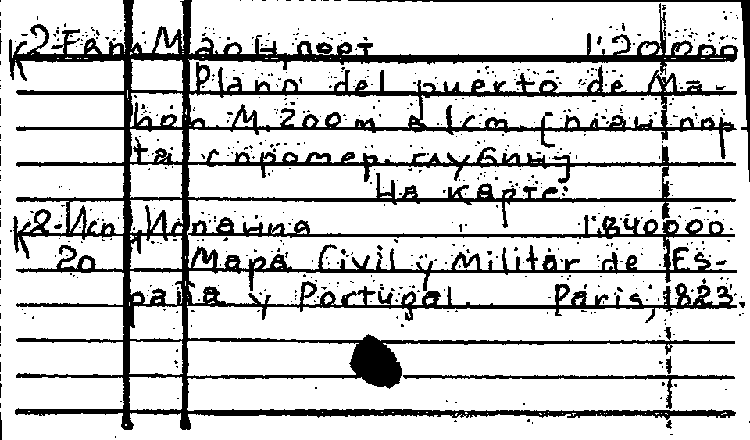 К2-Гал Маон, порт 1:20000
Plano del puerto de Ma-
hon М. 200 m в 1 cm. [план пор
та с промер. глубин]
На карте:
К2-Исп Испания 1:840000
20 Mapa Civil y Militar de Es-
paña y Portugal. Paris, 1823.